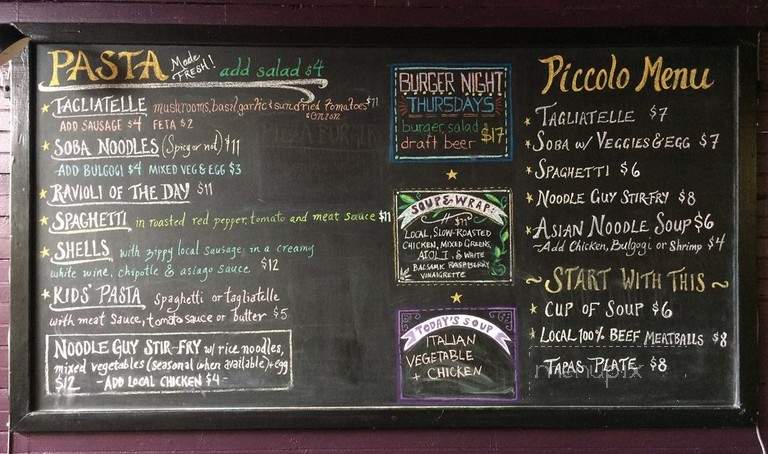 PASTA Made FRESH! add salad $4
TAGLIATELLE mushrooms, basil, garlic & sundried tomatoes $11
& onion
ADD SAUSAGE $4 FETA $2
SOBA NOODLES (Spicy or not) $11
ADD BULGOGI $4 MIXED VEG & EGG $3
RAVIOLI OF THE DAY $11
SPAGHETTI in roasted red pepper, tomato and meat sauce $11
SHELLS with zippy local sausage, in a creamy
white wine, chipotle & asiago sauce $12
KIDS' PASTA spaghetti or tagliatelle
with meat sauce, tomato sauce or butter $5
NOODLE GUY STIR-FRY w/ rice noodles,
mixed vegetables (seasonal when available) + egg
$12 - ADD LOCAL CHICKEN $4 -
BURGER NIGHT
THURSDAYS
burger, salad
draft beer $17
SOUP & WRAP
LOCAL, SLOW-ROASTED
CHICKEN, MIXED GREENS,
AIOLI, & WHITE
BALSAMIC RASPBERRY
VINAIGRETTE
TODAY'S SOUP
ITALIAN
VEGETABLE
+ CHICKEN
Piccolo Menu
TAGLIATELLE $7
SOBA W/ VEGGIES & EGG $7
SPAGHETTI $6
NOODLE GUY STIR-FRY $8
ASIAN NOODLE SOUP $6
-Add Chicken, Bulgogi or Shrimp $4
~START WITH THIS~
CUP OF SOUP $6
LOCAL 100% BEEF MEATBALLS $8
TAPAS PLATE $8
menupix